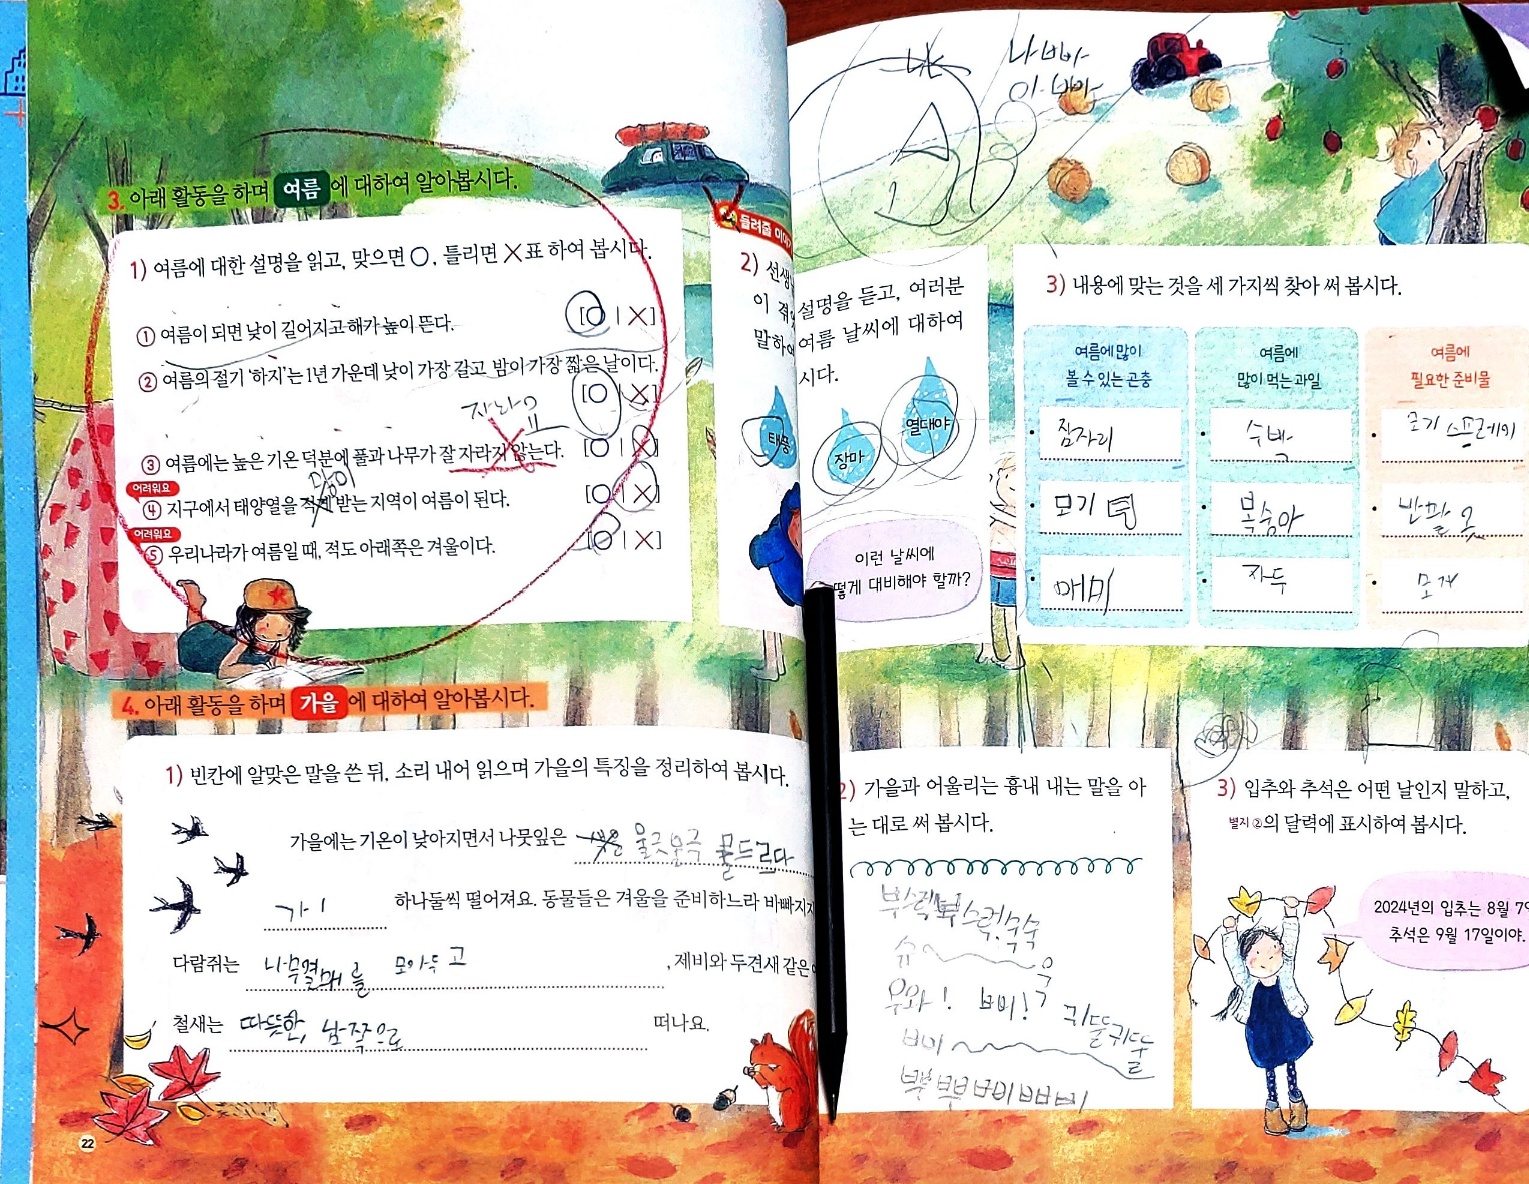 3. 아래 활동을 하며 여름 에 대하여 알아봅시다.
1) 여름에 대한 설명을 읽고, 맞으면 ○, 틀리면 ✕표 하여 봅시다.
① 여름이 되면 낮이 길어지고 해가 높이 뜬다. [○ | ✕]
② 여름의 절기 '하지'는 1년 가운데 낮이 가장 길고 밤이 가장 짧은 날이다.
[○ | ✕]
자라요
③ 여름에는 높은 기온 덕분에 풀과 나무가 잘 자라지 않는다. [○ | ✕]
많이
어려워요
④ 지구에서 태양열을 적게 받는 지역이 여름이 된다. [○ | ✕]
어려워요
⑤ 우리나라가 여름일 때, 적도 아래쪽은 겨울이다. [○ | ✕]
들려줄 이야
2) 선생
이 겪
말하여
태풍
나빠
이빠
A
설명을 듣고, 여러분
여름 날씨에 대하여
시다.
장마
열대야
이런 날씨에
떻게 대비해야 할까?
3) 내용에 맞는 것을 세 가지씩 찾아 써 봅시다.
여름에 많이
볼 수 있는 곤충
잠자리
모기
매미
여름에
많이 먹는 과일
수박
복숭아
자두
여름에
필요한 준비물
모기 스프레이
반팔 옷
모자
4. 아래 활동을 하며 가을 에 대하여 알아봅시다.
1) 빈칸에 알맞은 말을 쓴 뒤, 소리 내어 읽으며 가을의 특징을 정리하여 봅시다.
가을에는 기온이 낮아지면서 나뭇잎은 울긋불긋 물드른다
하나둘씩 떨어져요. 동물들은 겨울을 준비하느라 바빠지지
다람쥐는 나무열매를 모아두고 , 제비와 두견새 같은
철새는 따뜻한, 남쪽으로 떠나요.
22
2) 가을과 어울리는 흉내 내는 말을 아
는 대로 써 봅시다.
부스럭 부스럭. 쑥쑥
슈~욱
우와! 삐이!?
귀뚤귀뚤
삐이~
3) 입추와 추석은 어떤 날인지 말하고,
별지 ②의 달력에 표시하여 봅시다.
2024년의 입추는 8월 7일
추석은 9월 17일이야.